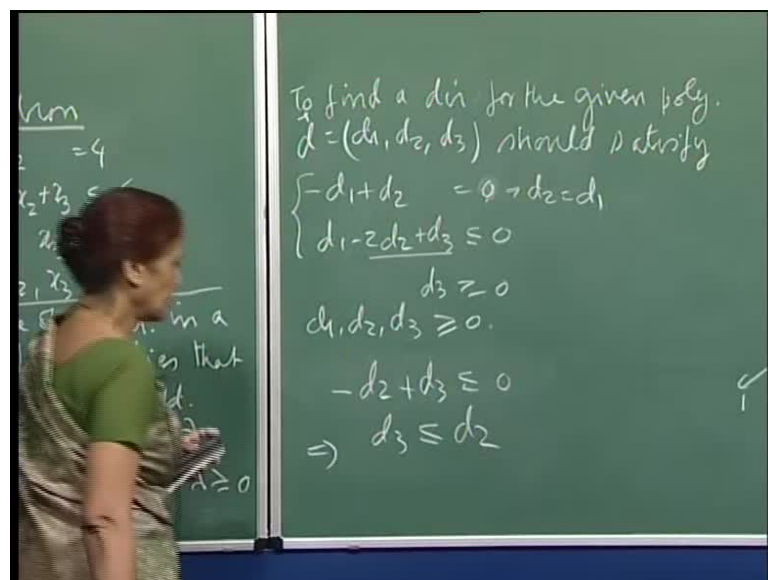 = 4
x₂+x₃ ≤
, x₃
in a
that
λ ≥ 0
To find a dir for the given poly.
d = (d₁, d₂, d₃) should satisfy
-d₁+d₂ = 0 → d₂=d₁
d₁-2d₂+d₃ ≤ 0
d₃ ≥ 0
d₁, d₂, d₃ ≥ 0.
-d₂+d₃ ≤ 0
⇒ d₃ ≤ d₂